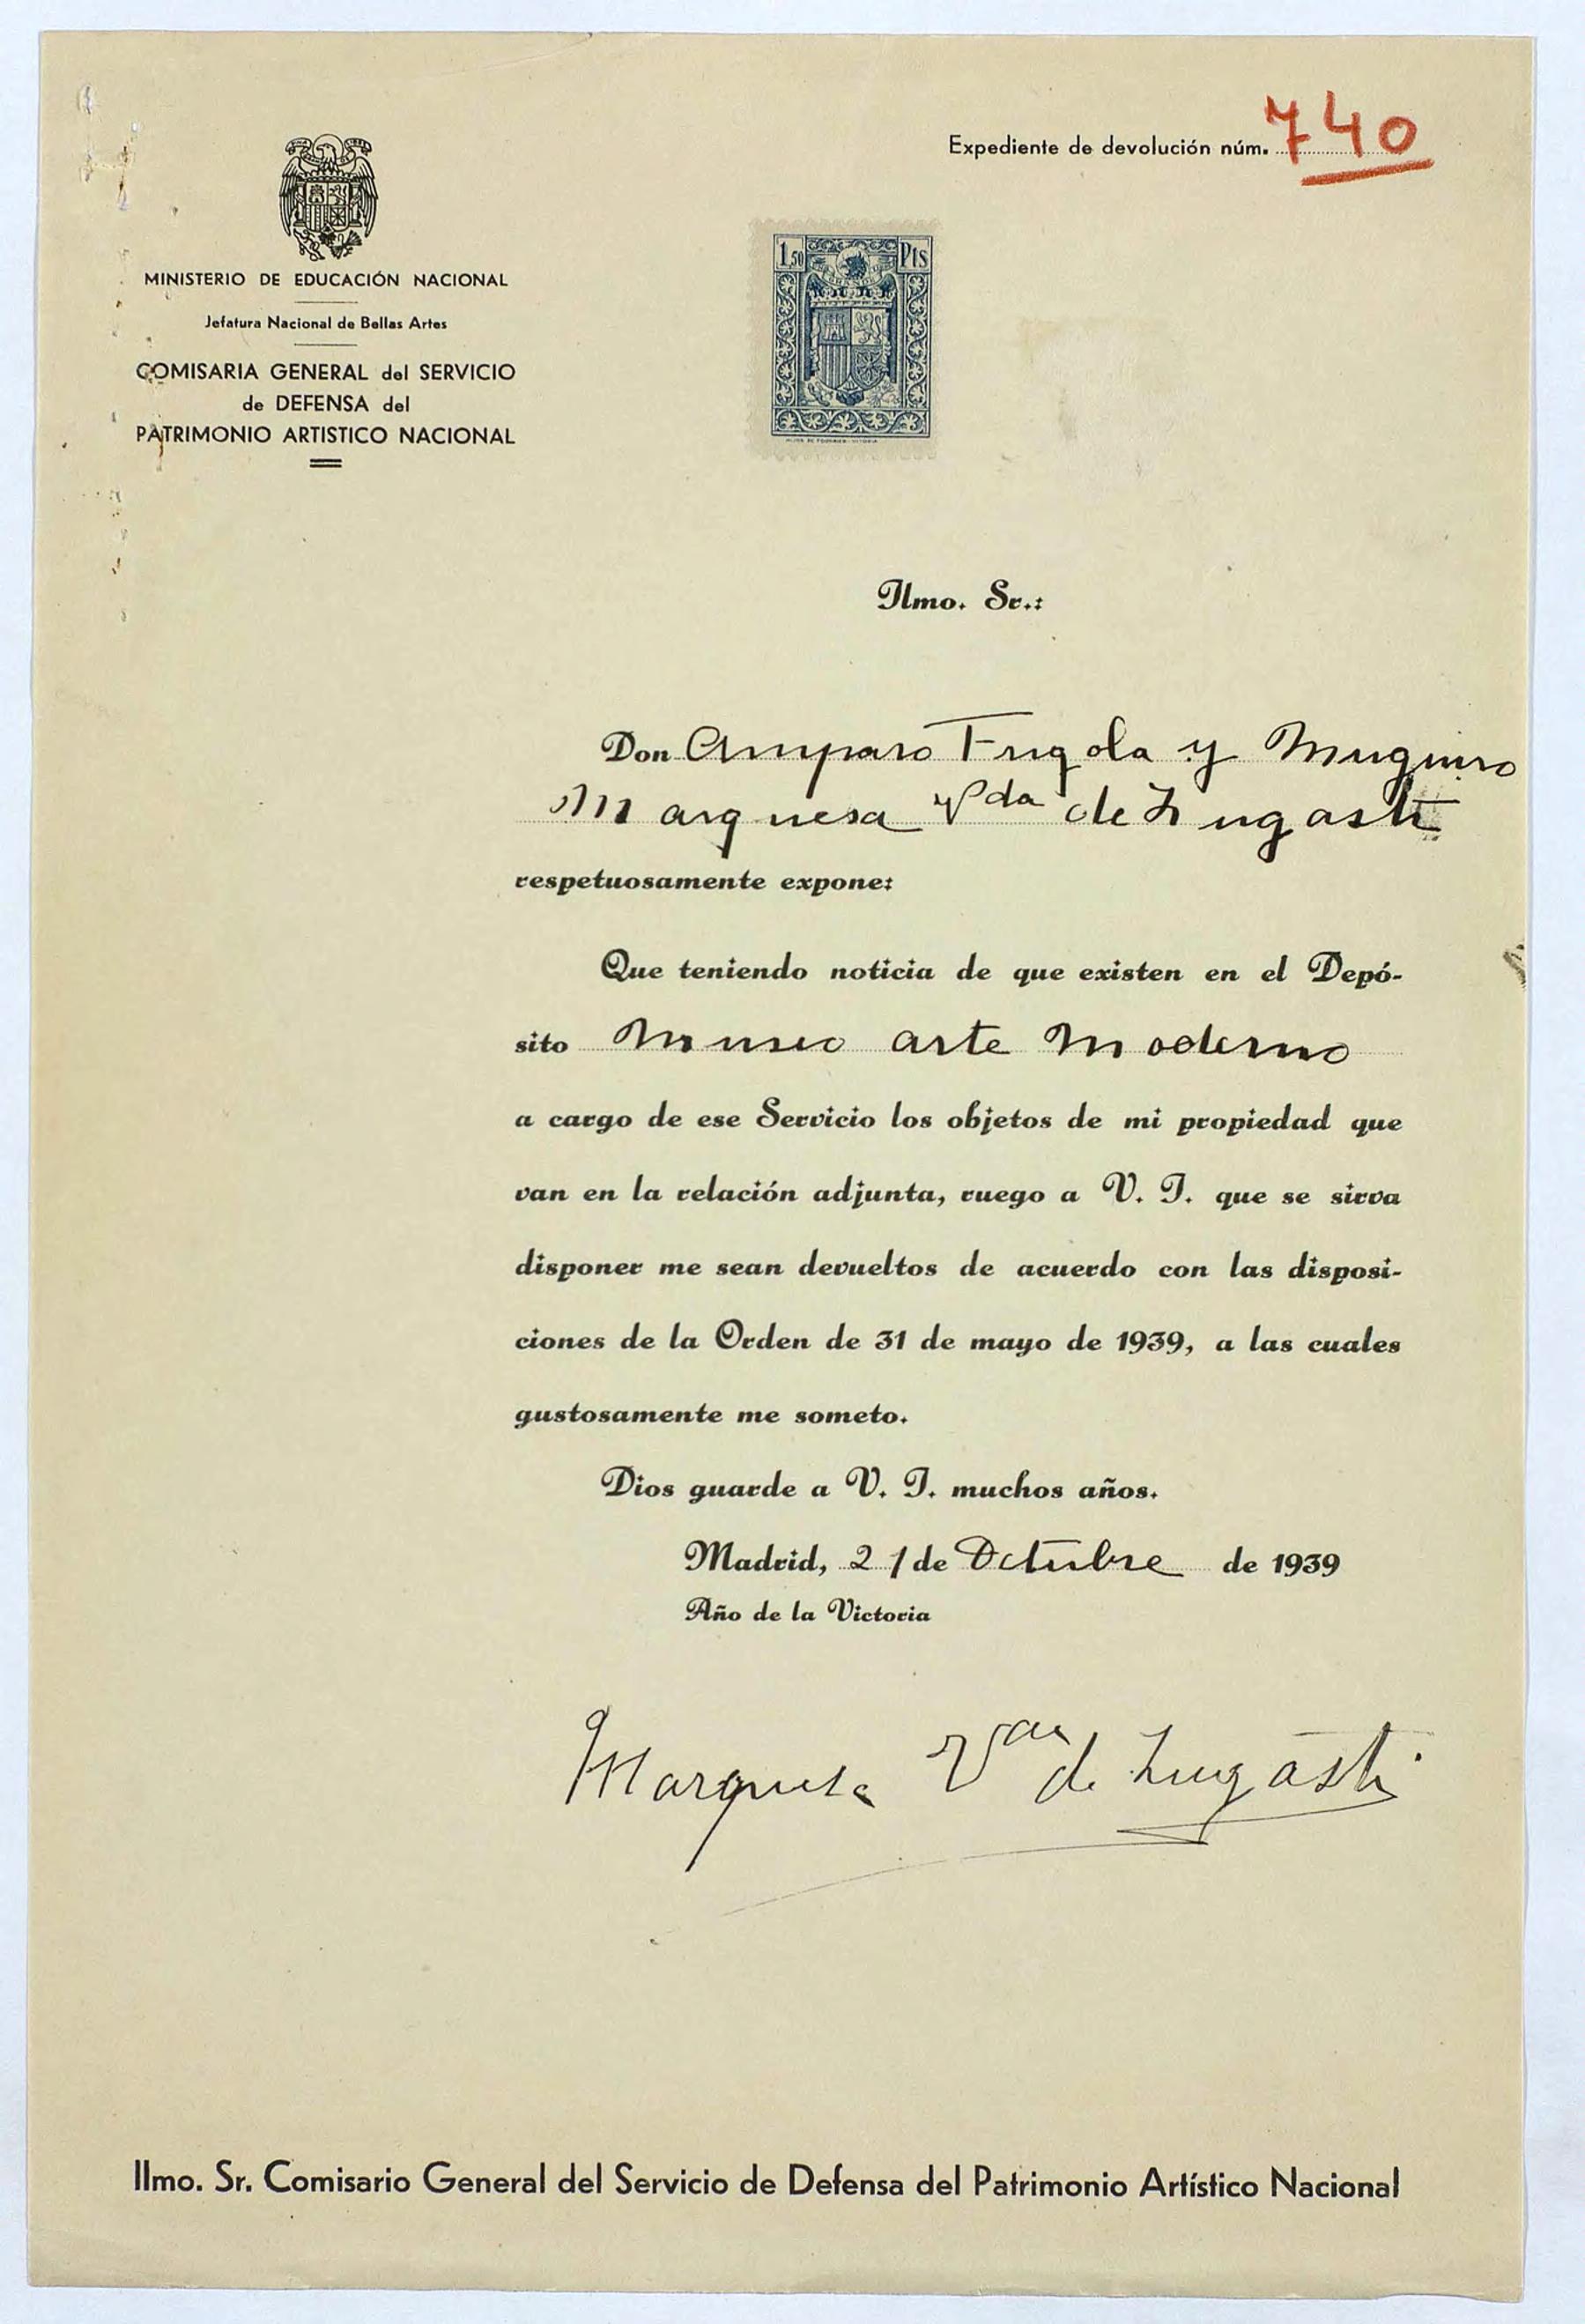 Expediente de devolución núm. 740
MINISTERIO DE EDUCACIÓN NACIONAL
Jefatura Nacional de Bellas Artes
COMISARIA GENERAL del SERVICIO
de DEFENSA del
PATRIMONIO ARTISTICO NACIONAL
1,50 Pts
Ilmo. Sr.:
Don Amparo Frigola y Muguiro
Marquesa Vda de Lugasti
respetuosamente expone:
Que teniendo noticia de que existen en el Depó-
sito Museo arte Moderno
a cargo de ese Servicio los objetos de mi propiedad que
van en la relación adjunta, ruego a V. I. que se sirva
disponer me sean devueltos de acuerdo con las disposi-
ciones de la Orden de 31 de mayo de 1939, a las cuales
gustosamente me someto.
Dios guarde a V. I. muchos años.
Madrid, 21 de Octubre de 1939
Año de la Victoria
Marquesa Vda de Lugasti
Ilmo. Sr. Comisario General del Servicio de Defensa del Patrimonio Artístico Nacional